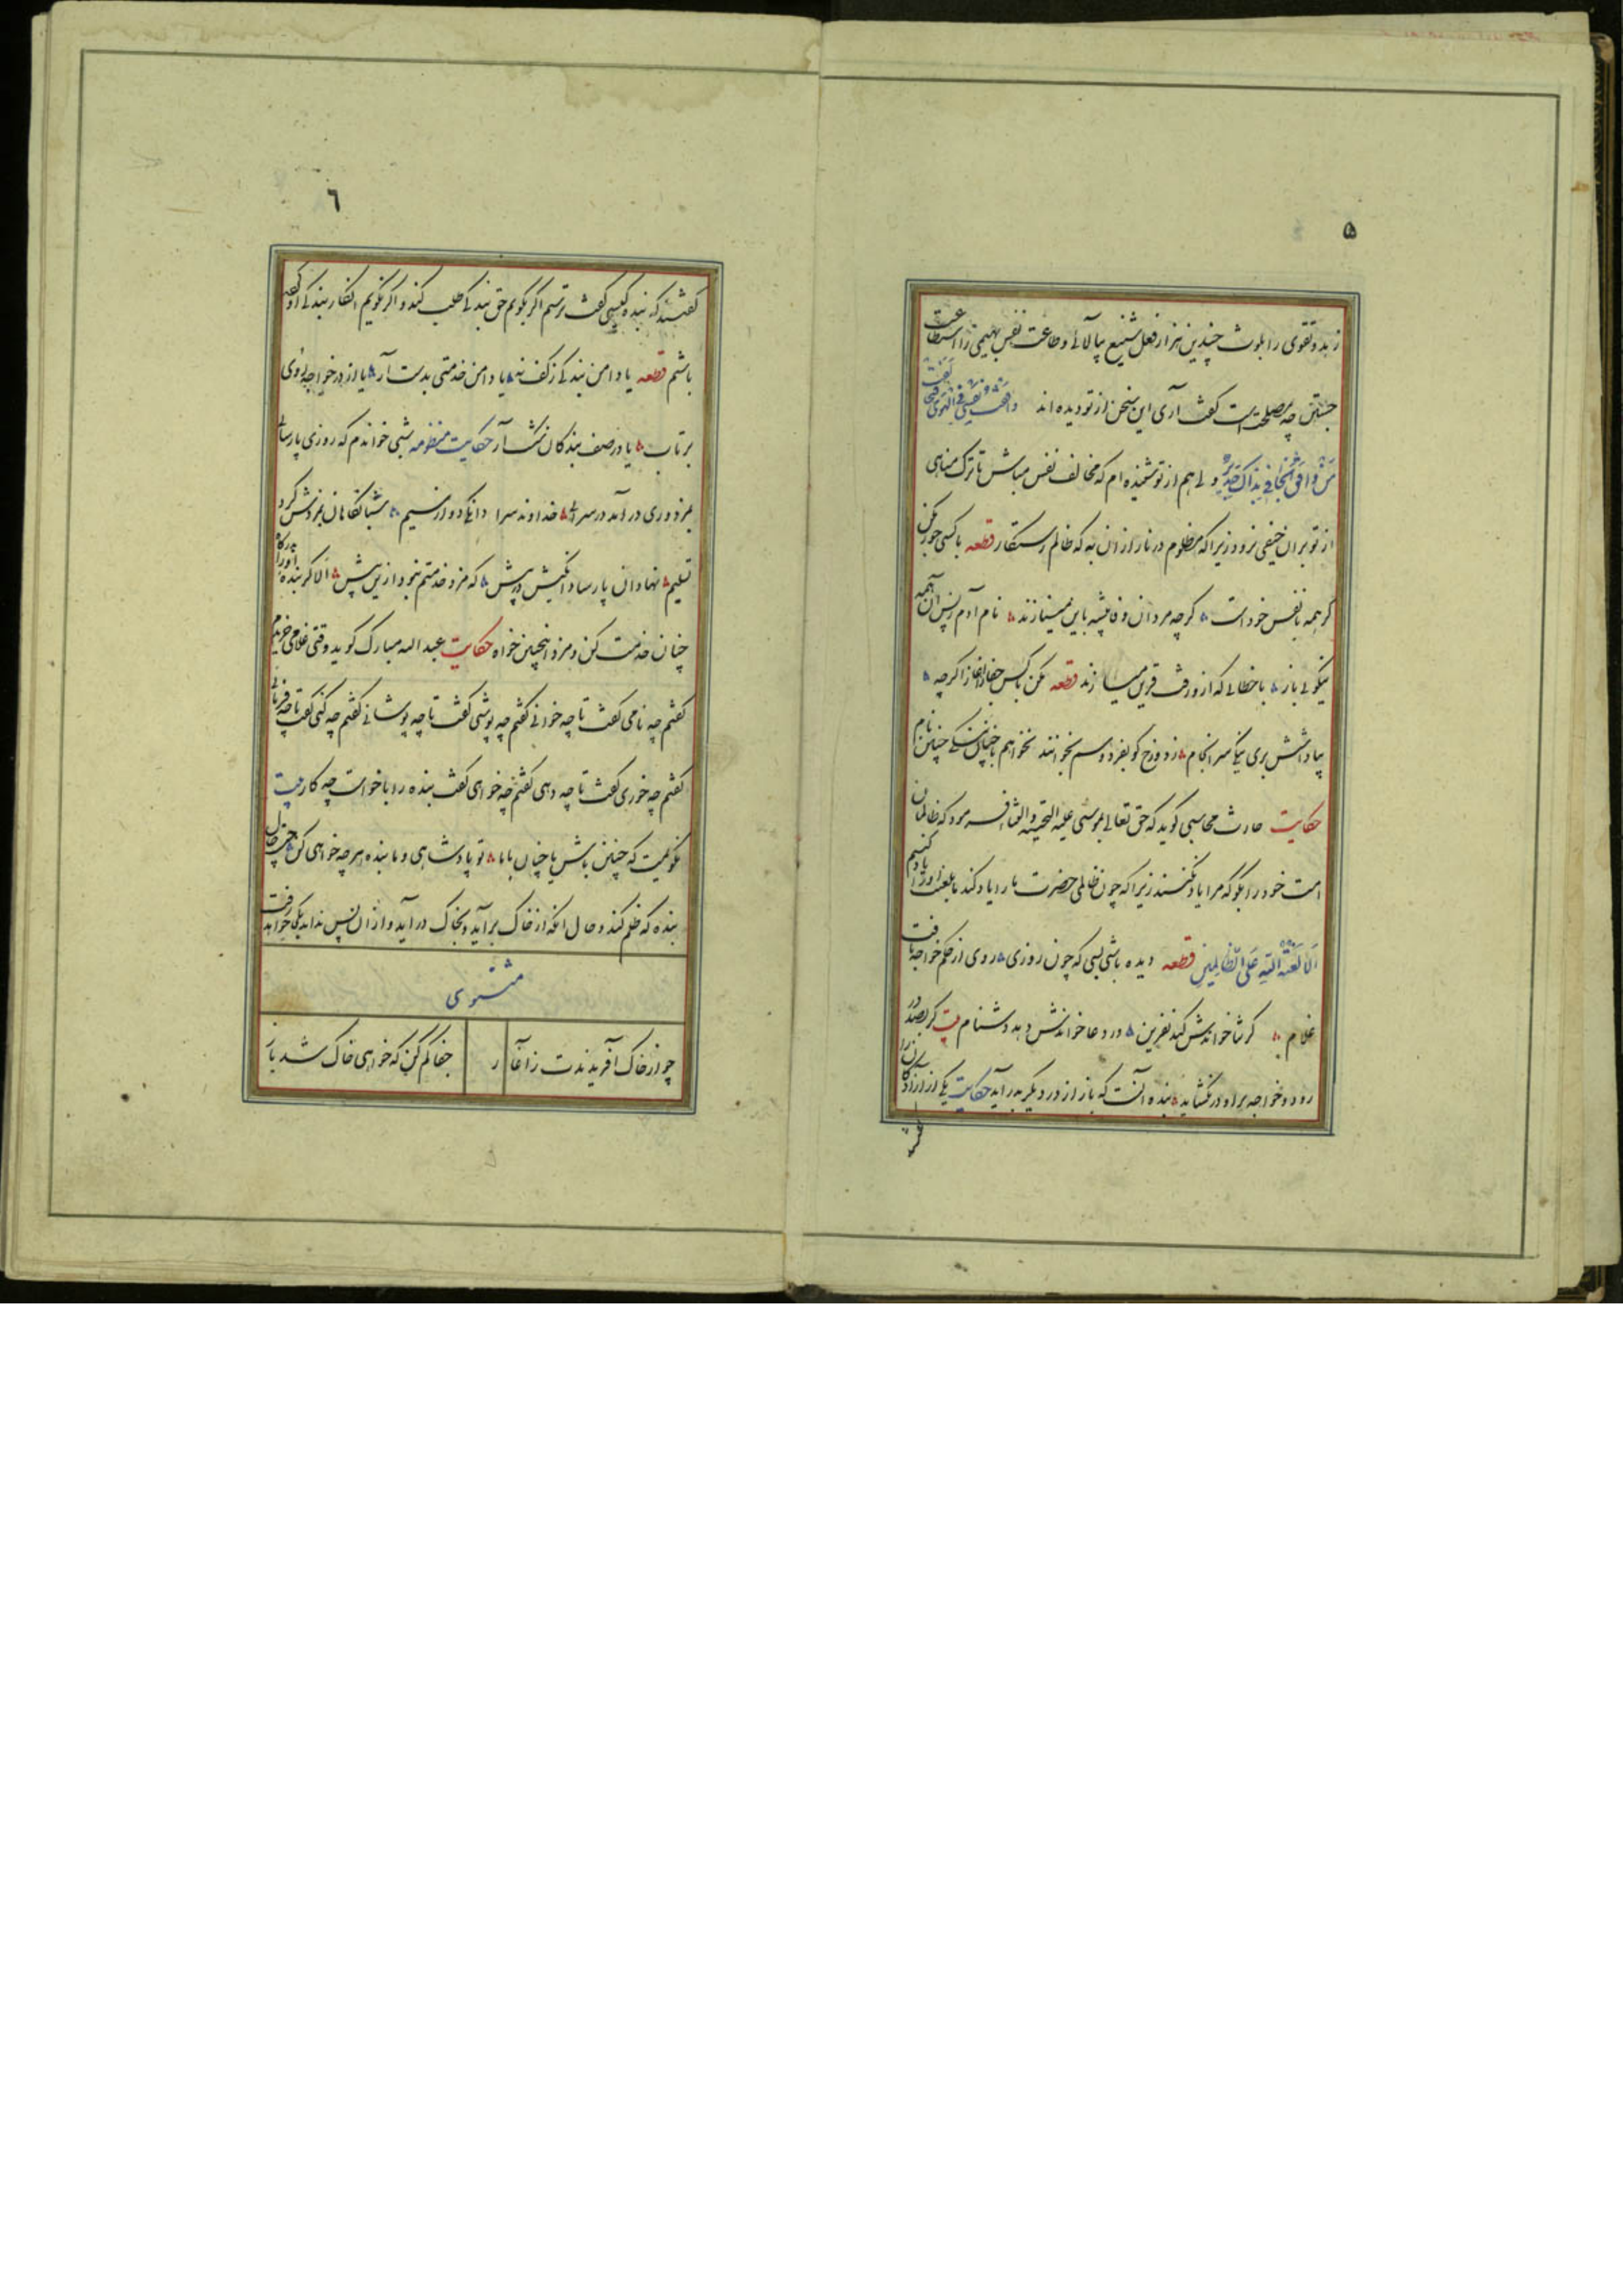 ۵
زهد و تقوی را بلوث چندین هزار فعل شنیع بیالائی و طاعت نفس بهیمی را استطاعت
جستن چه مصلحت است گفت آری این سخن از تو دیده اند وافقت نفسی فی الهوی
من وافق ولی هم از تو شنیده ام که مخالف نفس مباش تا ترک مناهی
از تو بران حیفی نرود زیرا که مظلوم در نار ازان به که ظالم رستگار قطعه با کسی جور مکن
گر همه با نفس خود است گرچه مردان وفا پیشه باین مینازند نام آدم ز پس آن همه
نیکوئی باز با خطائی که ازو رفت قرین میسازند قطعه مکن با کس جفا آغاز اگرچه
بپاداشش بری نیکی سرانجام ز دوزخ گو بفردوسم نخوانند نخواهم با چنان ننگی چنین نام
حکایت حارث محاسبی گوید که حق تعالی بموسی علیه التحیة والثنا فرمود که ظالمان
امت خود را بگو که مرا یاد نکنند زیرا که چون ظالمی حضرت ما را یاد کند ما بلعنت او را یاد کنیم
الا لعنة الله علی الظالمین قطعه دیده باشی بسی که چون روزی روی از حکم خواجه تافت
غلام گر ثنا خواندش کند نفرین ور دعا خواندش دهد دشنام بیت گر بصد در
رود و خواجه بر او در نگشاید بنده آنست که باز از در دیگر بدر آید حکایت یکی از آزادگان را
گفتند
٦
گفتند که بنده کیستی گفت ترسم اگر بگویم حق بندگی طلب کند و اگر نگویم انکار بندگی او کرده
باشم قطعه یا دامن بندگی ز کف نه یا دامن خدمتی بدست آر یا از در خواجه روی
برتاب یا در صف بندگان نشست آر حکایت منظومه شبی خواندم که روزی پارسائی
بمزدوری درآمد در سرائی خداوند سرا دانگی دو از سیم شبانگاهان بمزدش کرد
تسلیم نهاد آن پارسا دانگیش در پیش که مزد خدمتم نبود ازین بیش الا گر بنده او را بدرگاه
چنان خدمت کن و مزد اینچنین خواه حکایت عبد الله مبارک گوید وقتی غلامی خریدم
گفتم چه نامی گفت تا چه خوانی گفتم چه پوشی گفت تا چه پوشانی گفتم چه کنی گفت تا چه فرمائی
گفتم چه خوری گفت تا چه دهی گفتم چه خواهی گفت بنده را با خواست چه کار بیت
نگویمت که چنین باش یا چنان با ما تو پادشاهی و ما بنده هر چه خواهی کن حکایت
بنده که ظلم کند و حال آنکه از خاک برآید و بخاک درآید و ازان پس نداند بکجا خواهد رفت
مثنوی
چو از خاک آفریدندت ز آغاز
جفا کم کن که خواهی خاک شد باز